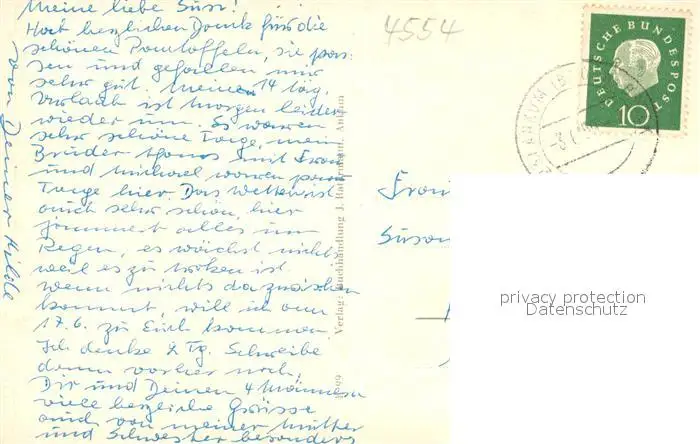 Meine liebe Susi!
Hab herzlichen Dank für die
schönen Pantoffeln, sie pas-
sen und gefallen mir
sehr gut. Meine 14 täg.
Urlaub ist morgen leider
wieder um. Es waren
sehr schöne Tage, mein
Bruder Hans mit Frau
und Michael waren paar
Tage hier. Das Wetter ist
auch sehr schön, hier
jammert alles um
Regen, es wächst nichts
weil es zu troken ist
wenn nichts dazwischen
kommt, will ich am
17.6. zu Euch kommen.
Ich denke 2 Tg. Schreibe
dann vorher noch.
Dir und Deinen 4 Männern
viele herzliche Grüsse
auch von meiner Mutter
und Schwester besonders
von Deiner Hilde
4554
DEUTSCHE BUNDESPOST
10
ANKUM
Verlag: Buchhandlung J. Ankum
Frau
privacy protection
Datenschutz